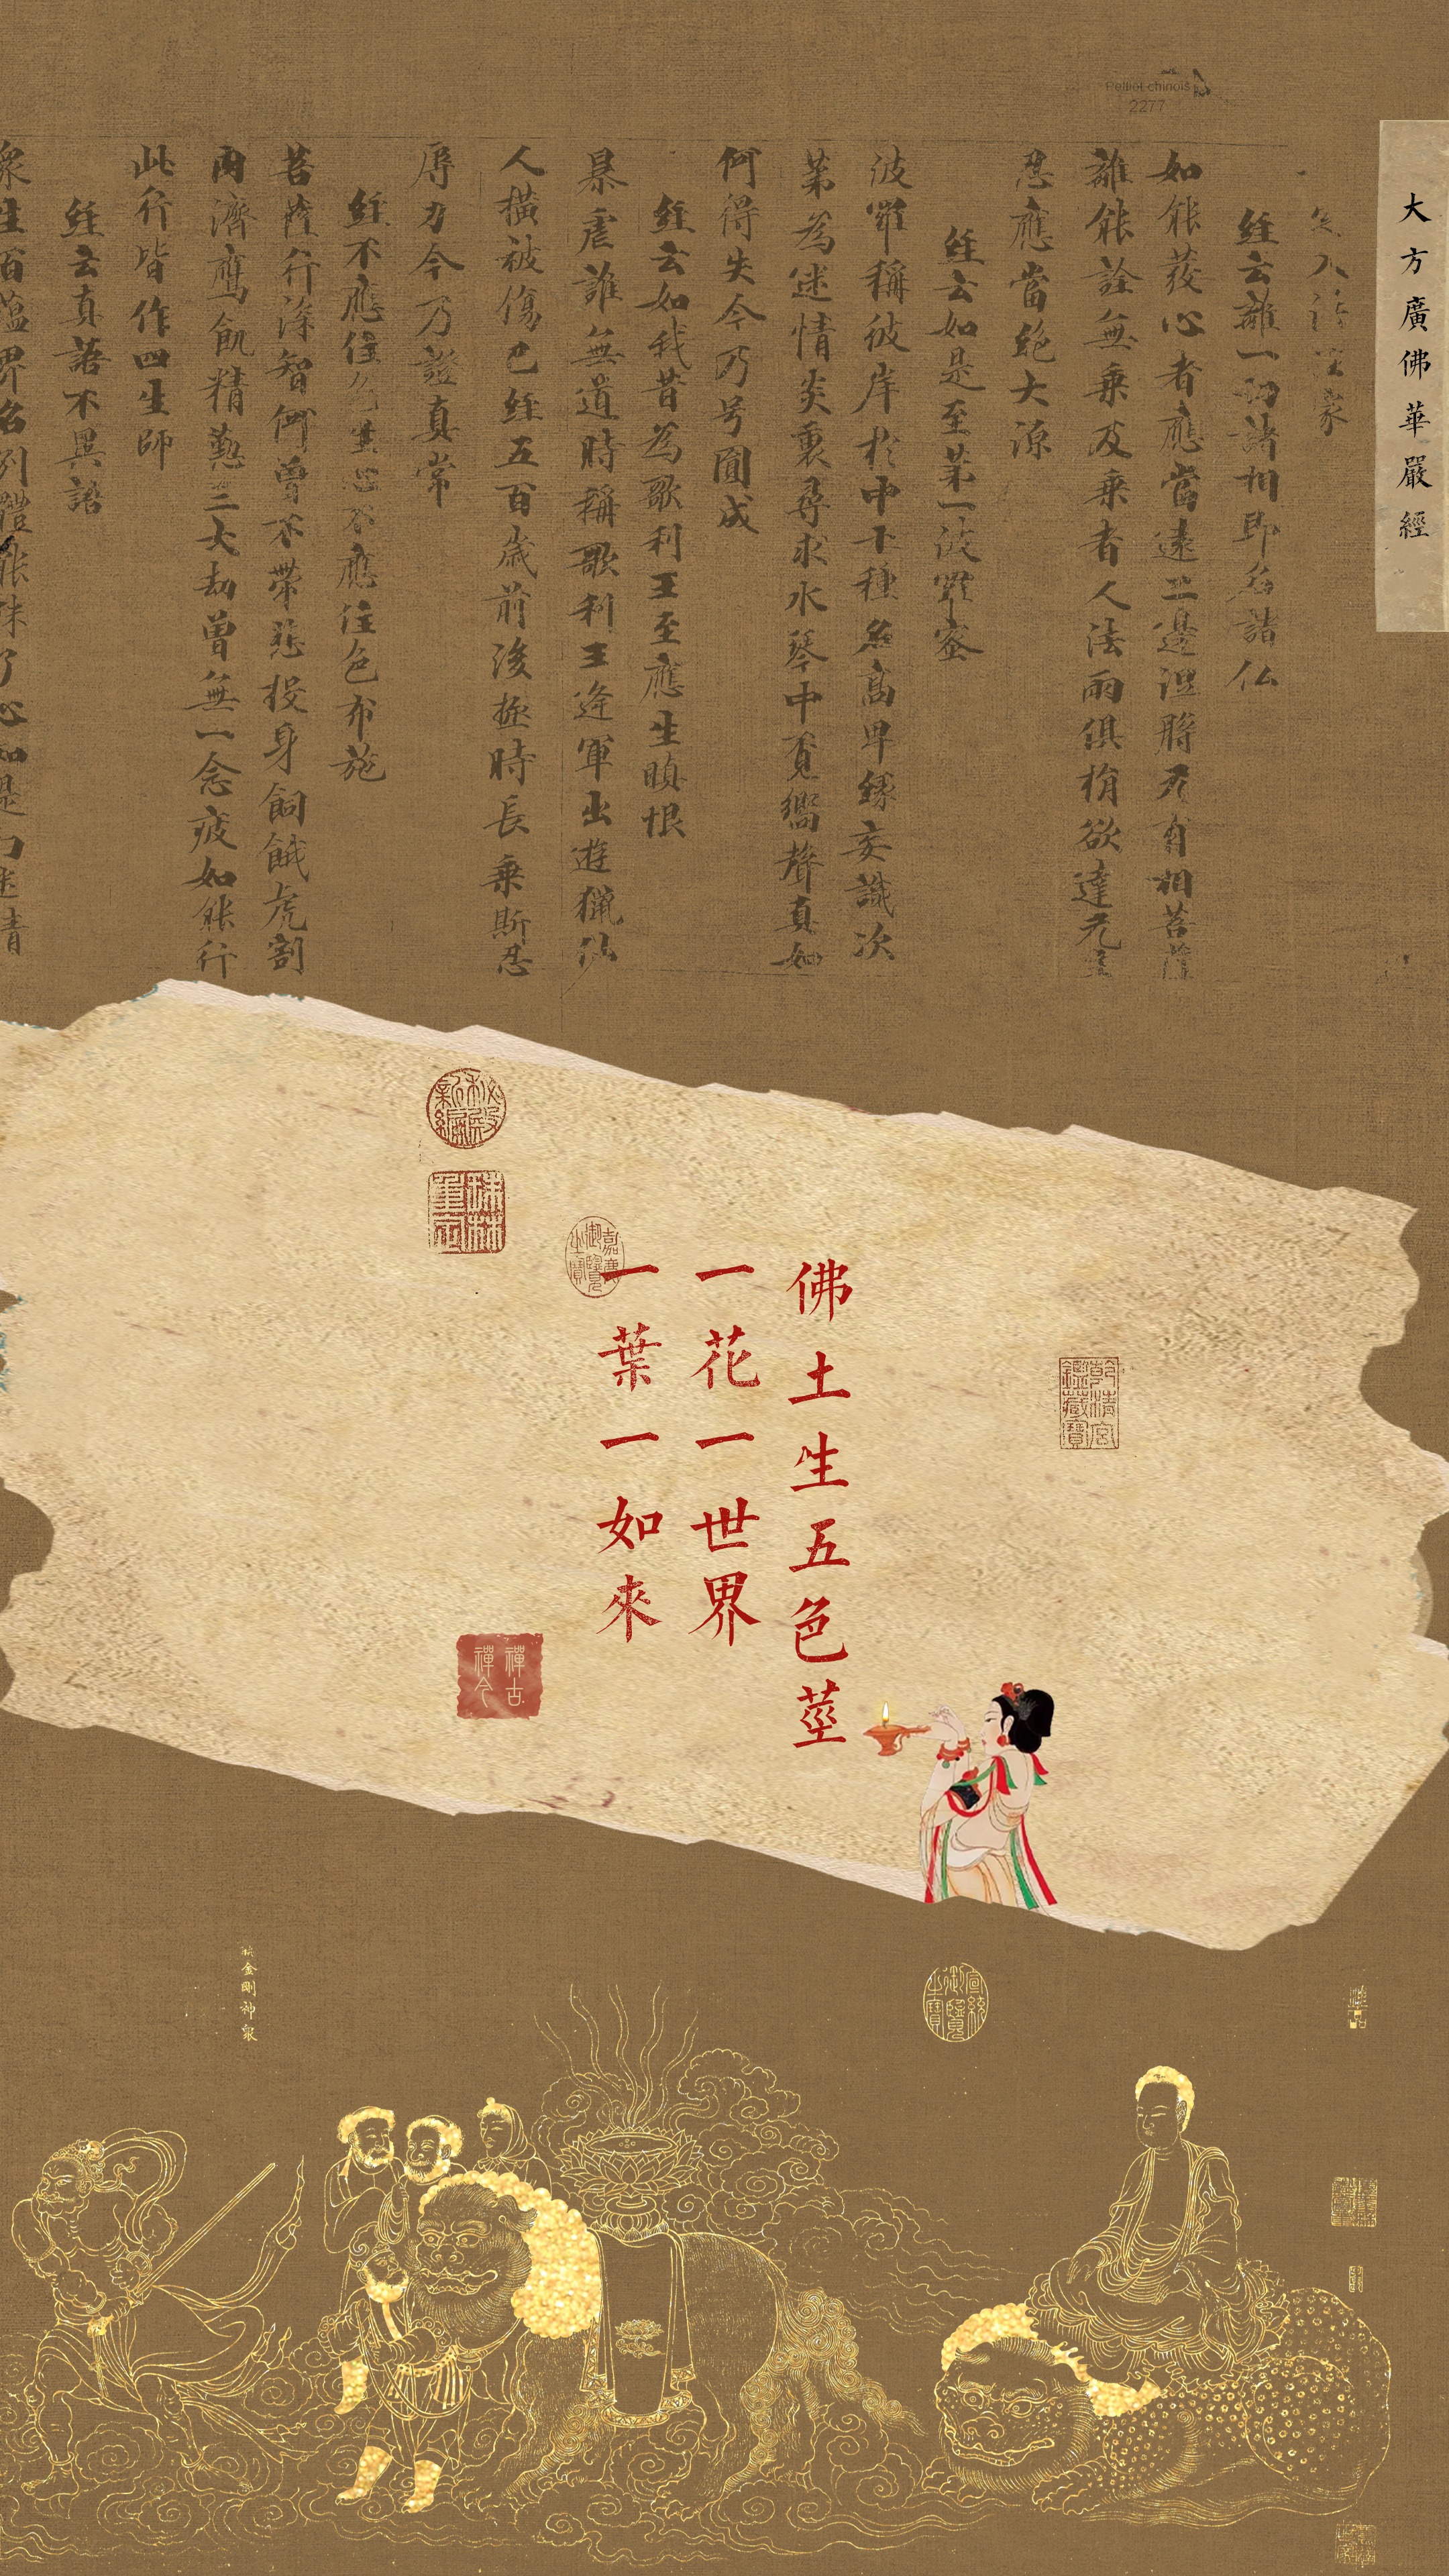 Pelliot chinois
2277
大方廣佛華嚴經
經云離一切諸相即名諸仏
如能發心者應當遠二邊涅槃无有相菩薩
離能詮無乘及乘者人法兩俱捐欲達无
忍應當絕大源
經云如是至第一波羅蜜
波羅稱彼岸於中十種名高卑緣妄識次
第為迷情炎裏尋求水琴中覓嚮聲真如
何得失今乃号圓成
經云如我昔為歌利王至應生瞋恨
暴虐誰無道時稱歌利王逢軍出遊獵仙
人橫被傷已經五百歲前後極時長乘斯忍
辱力今乃證真常
經不應住色生心不應住色布施
菩薩行深智何曾不帶悲投身飼餓虎割
肉濟鷹飢精懃三大劫曾無一念疲如能行
此行皆作四生師
經云真語不異語
眾生百蘊界名別體
佛土生五色莖
一花一世界
一葉一如來
秘殿新編
珠林重定
嘉慶御覽之寶
乾清宮鑑藏寶
禪古禪今
金剛神眾
宣統御覽之寶